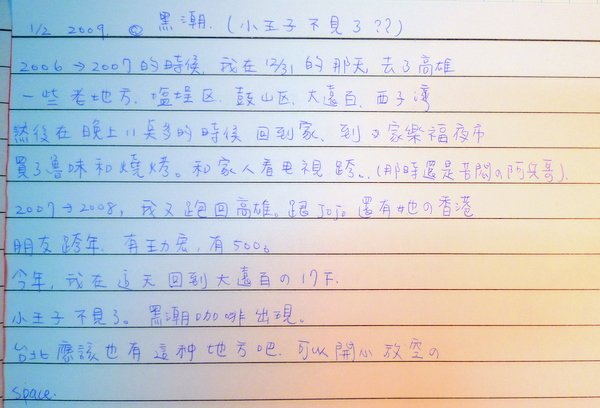 1/2 2009. @ 黑潮. (小王子不見了??)
2006→2007的時候, 我在12/31的那天, 去了高雄
一些老地方. 塩埕区. 鼓山区. 大遠百. 西子灣
然後在晚上11點多的時候 回到家、到了家樂福夜市
買了魯味和燒烤。和家人看电視跨.. (那時還是苦悶の阿兵哥).
2007→2008, 我又跑回高雄。跟Jojo 還有她の香港
朋友跨年. 有王力宏, 有5006
今年, 我在這天回到大遠百の17F.
小王子不見了。黑潮咖啡出現。
台北應該也有這种地方吧. 可以開心放空の
space.